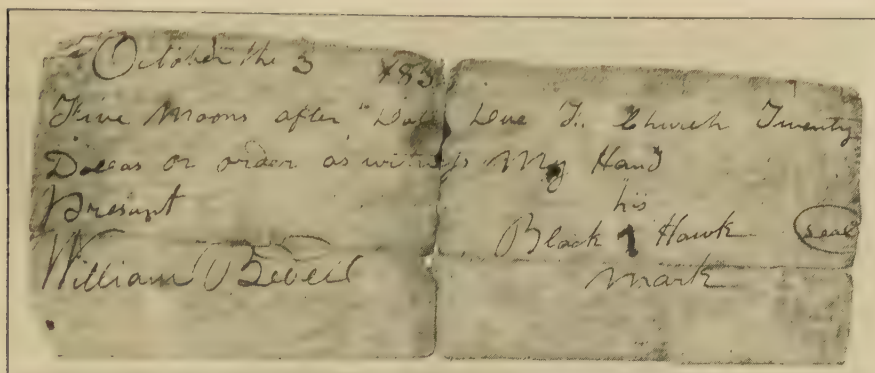 October the 3 183
Five Moons after Date Due F. Church Twenty
Dollas or order as witness My Hand
Present his
William Black Hawk seal
mark